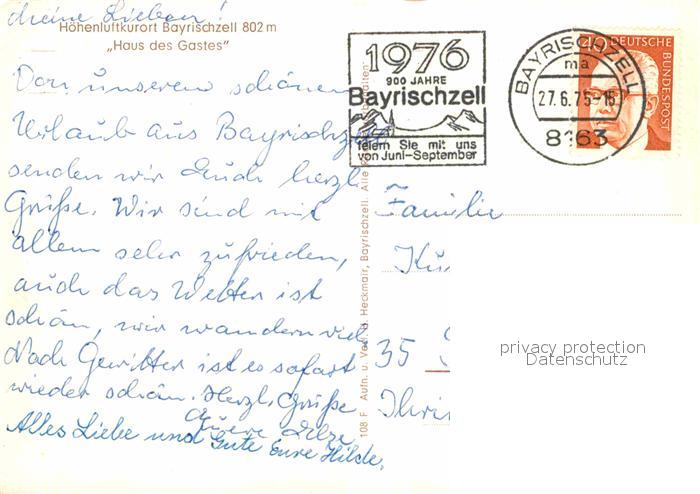 Meine Lieben!
Höhenluftkurort Bayrischzell 802 m
„Haus des Gastes"
Von unserem schönen
Urlaub aus Bayrischzell
senden wir Euch herzl.
Grüße. Wir sind mit
allem sehr zufrieden,
auch das Wetter ist
schön, wir wandern viel
Nach Gewitter ist es sofort
wieder schön. Herzl. Grüße
Eure Ilse
Alles Liebe und Gute Eure Hilde,
108 F Aufn. u. Verl. Heckmair, Bayrischzell. Alle
1976
900 JAHRE
Bayrischzell
feiern Sie mit uns
von Juni-September
BAYRISCHZELL
ma
27.6.75-16
8163
40 DEUTSCHE
BUNDESPOST
Familie
35
privacy protection
Datenschutz